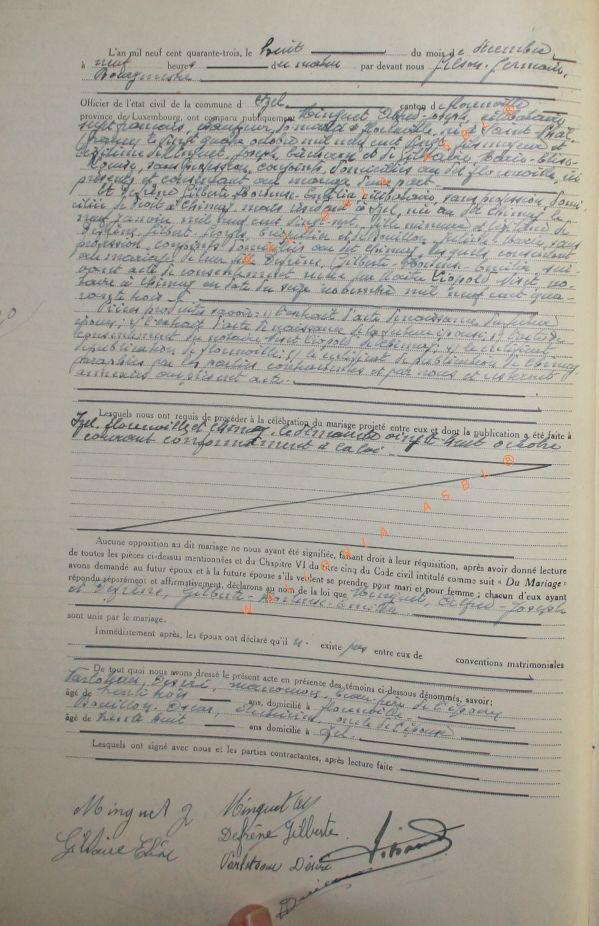 L'an mil neuf cent quarante-trois, le huit du mois de décembre
à neuf heures du matin par devant nous Gilson, Germain,
Bourgmestre
Officier de l'état civil de la commune d'Izel canton de Florenville
province de Luxembourg, ont comparu publiquement Minguet, Alfred-Joseph, célibataire,
sujet français, domicilié à Florenville, né à Saint
mil neuf cent vingt, fils majeur et
légitime de Minguet, Joseph, bûcheron et de Gillaire, Marie-Elise-
sans profession, conjoints, domiciliés au dit Florenville, ici
présents et consentant au mariage d'une part
Et Defrêne Gilberte-Hortense-Emilia célibataire, sans profession, domi-
ciliée de droit à Chimay, mais résidant à Izel, née au dit Chimay le
neuf janvier mil neuf cent vingt-six, fille mineure et légitime de
Defrêne, Gilbert-Joseph, et de Bouillon, Juliette, sans
profession, conjoints domiciliés au dit Chimay, lesquels consentent
au mariage de leur fille Defrêne, Gilberte-Hortense-Emilia, sui-
vant acte de consentement reçu par Maître Léopold no-
taire à Chimay en date du seize novembre mil neuf cent qua-
rante trois.
Pièces produites savoir: 1/ l'extrait d'acte de naissance du futur
époux; 2/ l'extrait d'acte de naissance de la future épouse; 3/ l'acte de
consentement du notaire Léopold de Chimay; 4/ le certificat
de publication de Florenville; 5/ le certificat de publication de Chimay,
paraphés par les parties contractantes et par nous et resteront
annexées au présent acte.
Lesquels nous ont requis de procéder à la célébration du mariage projeté entre eux et dont la publication a été faite à
Izel, Florenville et Chimay, le dimanche vingt-huit octobre
courant conformément à la loi
Aucune opposition au dit mariage ne nous ayant été signifiée, faisant droit à leur réquisition, après avoir donné lecture
de toutes les pièces ci-dessus mentionnées et du Chapitre VI du titre cinq du Code civil intitulé comme suit « Du Mariage »
avons demandé au futur époux et à la future épouse s'ils veulent se prendre pour mari et pour femme ; chacun d'eux ayant
répondu séparément et affirmativement, déclarons au nom de la loi que Minguet, Alfred-Joseph
et Defrêne, Gilberte-Hortense-Emilia
sont unis par le mariage.
Immédiatement après, les époux ont déclaré qu'il n' existe pas entre eux de conventions matrimoniales
De tout quoi nous avons dressé le présent acte en présence des témoins ci-dessous dénommés, savoir;
Désiré, beau-frère de l'époux
âgé de trente trois ans, domicilié à Florenville.
Bouillon, Oscar, oncle de l'épouse
âgé de trente huit ans domicilié à Izel.
Lesquels ont signé avec nous et les parties contractantes, après lecture faite
Minguet J Minguet
Gillaire Elise Defrêne Gilberte
Désiré
WALLONIA ASBL ®
WALLONIA ASBL ®